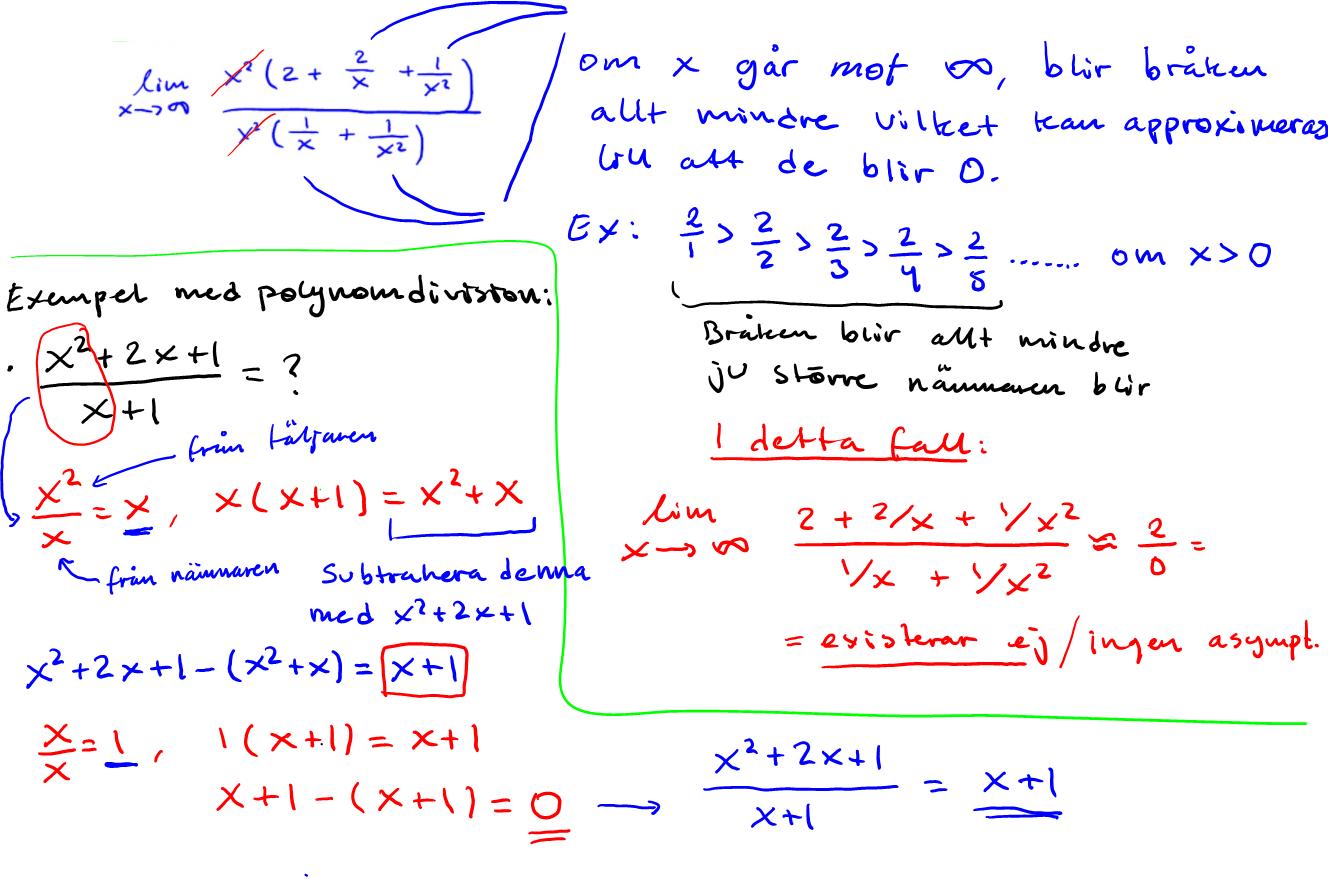 lim x→∞ x²(2 + 2/x + 1/x²) / x²(1/x + 1/x²)
om x går mot ∞, blir bråken
allt mindre vilket kan approximeras
till att de blir 0.
Ex: 2/1 > 2/2 > 2/3 > 2/4 > 2/5 ....... om x > 0
Bråken blir allt mindre
ju större nämnaren blir
I detta fall:
lim x→∞ (2 + 2/x + 1/x²) / (1/x + 1/x²) ≈ 2/0 =
= existerar ej / ingen asympt.
Exempel med polynomdivision:
. (x² + 2x + 1) / (x + 1) = ?
från täljaren
x²/x = x, x(x+1) = x² + x
från nämnaren
Subtrahera denna
med x² + 2x + 1
x² + 2x + 1 - (x² + x) = x + 1
x/x = 1, 1(x+1) = x + 1
x + 1 - (x + 1) = 0 → (x² + 2x + 1) / (x + 1) = x + 1